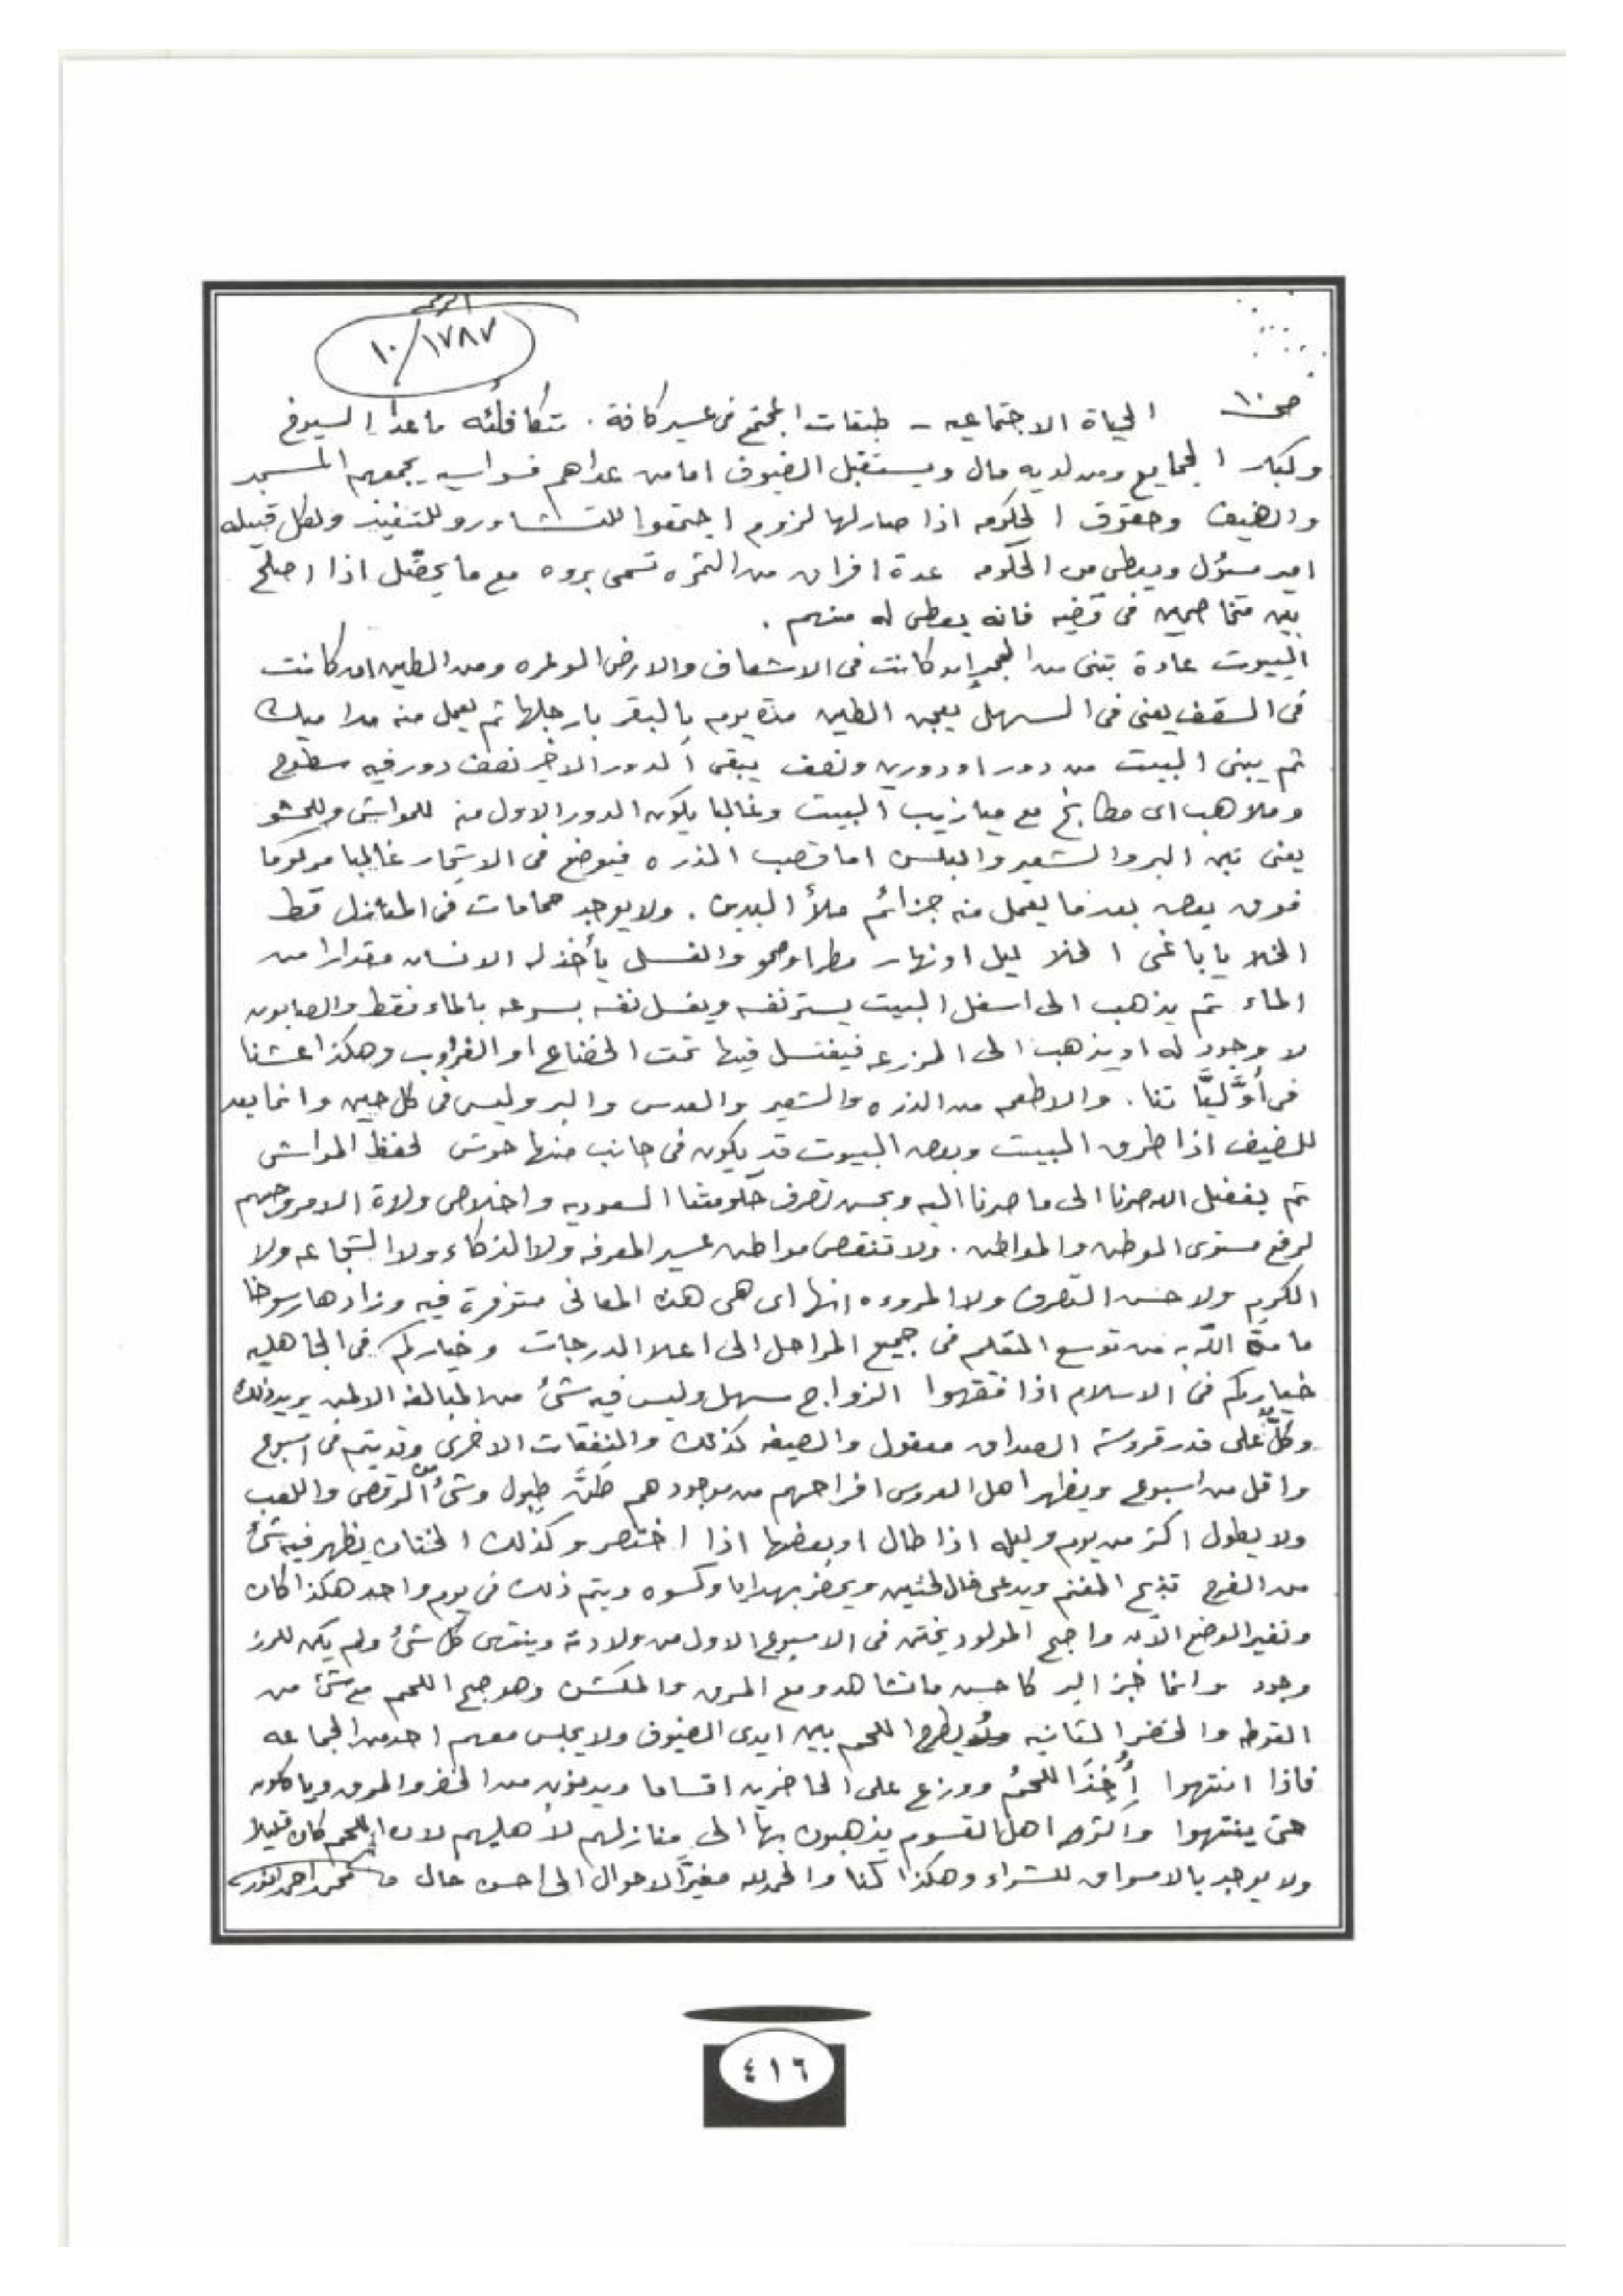 الرقم
١٠/١٧٨٧
ص ١٠ الحياة الاجتماعيه - طبقات المجتمع فى عسير كافة . متكافئه ماعدا الشيوخ
وكبار الجماييع ومن لديه مال ويستقبل الضيوف اما من عداهم فسواسيه يجمعهم المسجد
والضيف وحقوق الحكومه اذا صار لها لزوم اجتمعوا للتشاور وللتنفيذ ولكل قبيله
امير مسؤل ويعطى من الحكومه عدة افراق من الثمره تسمى بروه مع ما يحصّل اذا اصلح
بين متخاصمين فى قضيه فانه يعطى له منهم .
البيوت عادة تبنى من الحجر ان كانت فى الاشعاف والارض الوعره ومن الطين ان كانت
فى السقف يعنى فى السهل يعجن الطين مدة يوم بالبقر بارجلها ثم يعمل منه مداميك
ثم يبنى البيت من دور او دورين ونصف يبقى الدور الاخير نصف دور فيه سطوح
وملاهب اى مطابخ مع ميازيب البيت وغالبا يكون الدور الاول منه للمواشى وللحشو
يعنى تبن البر والشعير والبلسن اما قصب الذره فيوضع فى الاشجار غالبا مركوما
فوق بعض بعدما يعمل منه جزائم ملأ اليدين . ولا يوجد حمامات فى المنازل قط
الخلا يا باغى الخلا ليل او نهار مطر او صحو والغسل يأخذ له الانسان مقدارا من
الماء ثم يذهب الى اسفل البيت يستر نفسه ويغسل نفسه بسرعه بالماء فقط والصابون
لا وجود له او يذهب الى المزرعه فيغتسل فيها تحت الخضاع او الغروب وهكذا عشنا
فى أوّليّا تنا . والاطعمه من الذره والشعير والعدس والبر وليس فى كل حين وانما يعد
للضيف اذا طرق البيت وبعض البيوت قد يكون فى جانب منها حوش لحفظ المواشى
ثم بفضل الله صرنا الى ما صرنا اليه وبحسن تصرف حكومتنا السعوديه واخلاص ولاة الامر وحبهم
لرفع مستوى الموطن والمواطن . ولا تنقص مواطن عسير المعرفه ولا الذكاء ولا الشجاعه ولا
الكرم ولا حسن التصرف ولا المروءه انها اى هى هذه المعانى متوفرة فيه وزادها رسوخا
ما منّ الله به من توسع التعليم فى جميع المراحل الى اعلا الدرجات وخياركم فى الجاهليه
خياركم فى الاسلام اذا فقهوا الزواج سهل وليس فيه شئ من المبالغه الا لمن يريد ذلك
وكلّ على قدر قروشه الصداق معقول والصيغه كذلك والنفقات الاخرى وقد يتم فى اسبوع
واقل من اسبوع ويظهر اهل العروس افراحهم من موجودهم طقّ طبول وشئ من الرقص واللعب
ولا يطول اكثر من يوم وليله اذا طال او بعضها اذا اختصر وكذلك الختان يظهر فيه شئ
من الفرح تذبح الغنم ويدعى خال الختين ويحضر بهدايا وكسوه ويتم ذلك فى يوم واحد هكذا كان
وتغير الوضع الآن واصبح المولود يختن فى الاسبوع الاول من ولادته وينتهى كل شئ ولم يكن للرز
وجود وانما خبز البر كاحسن ما تشاهد ومع المرق والمكشن وهو جمع اللحم مع شئ من
القوطه والخضر الثانيه ويطرح اللحم بين ايدى الضيوف ولا يجلس معهم احد من الجماعه
فاذا انتهوا أُخِذَ اللحمُ ووزع على الحاضرين اقساما ويدنون من الخضر والمرق وياكلون
حتى ينتهوا واكثر اهل القسوم يذهبون بها الى منازلهم لأهليهم لان اللحم كان قليلا
ولا يوجد بالاسواق للشراء وهكذا كنا والحمد لله مغيّر الاحوال الى احسن حال محمد احمد انور
٤١٦